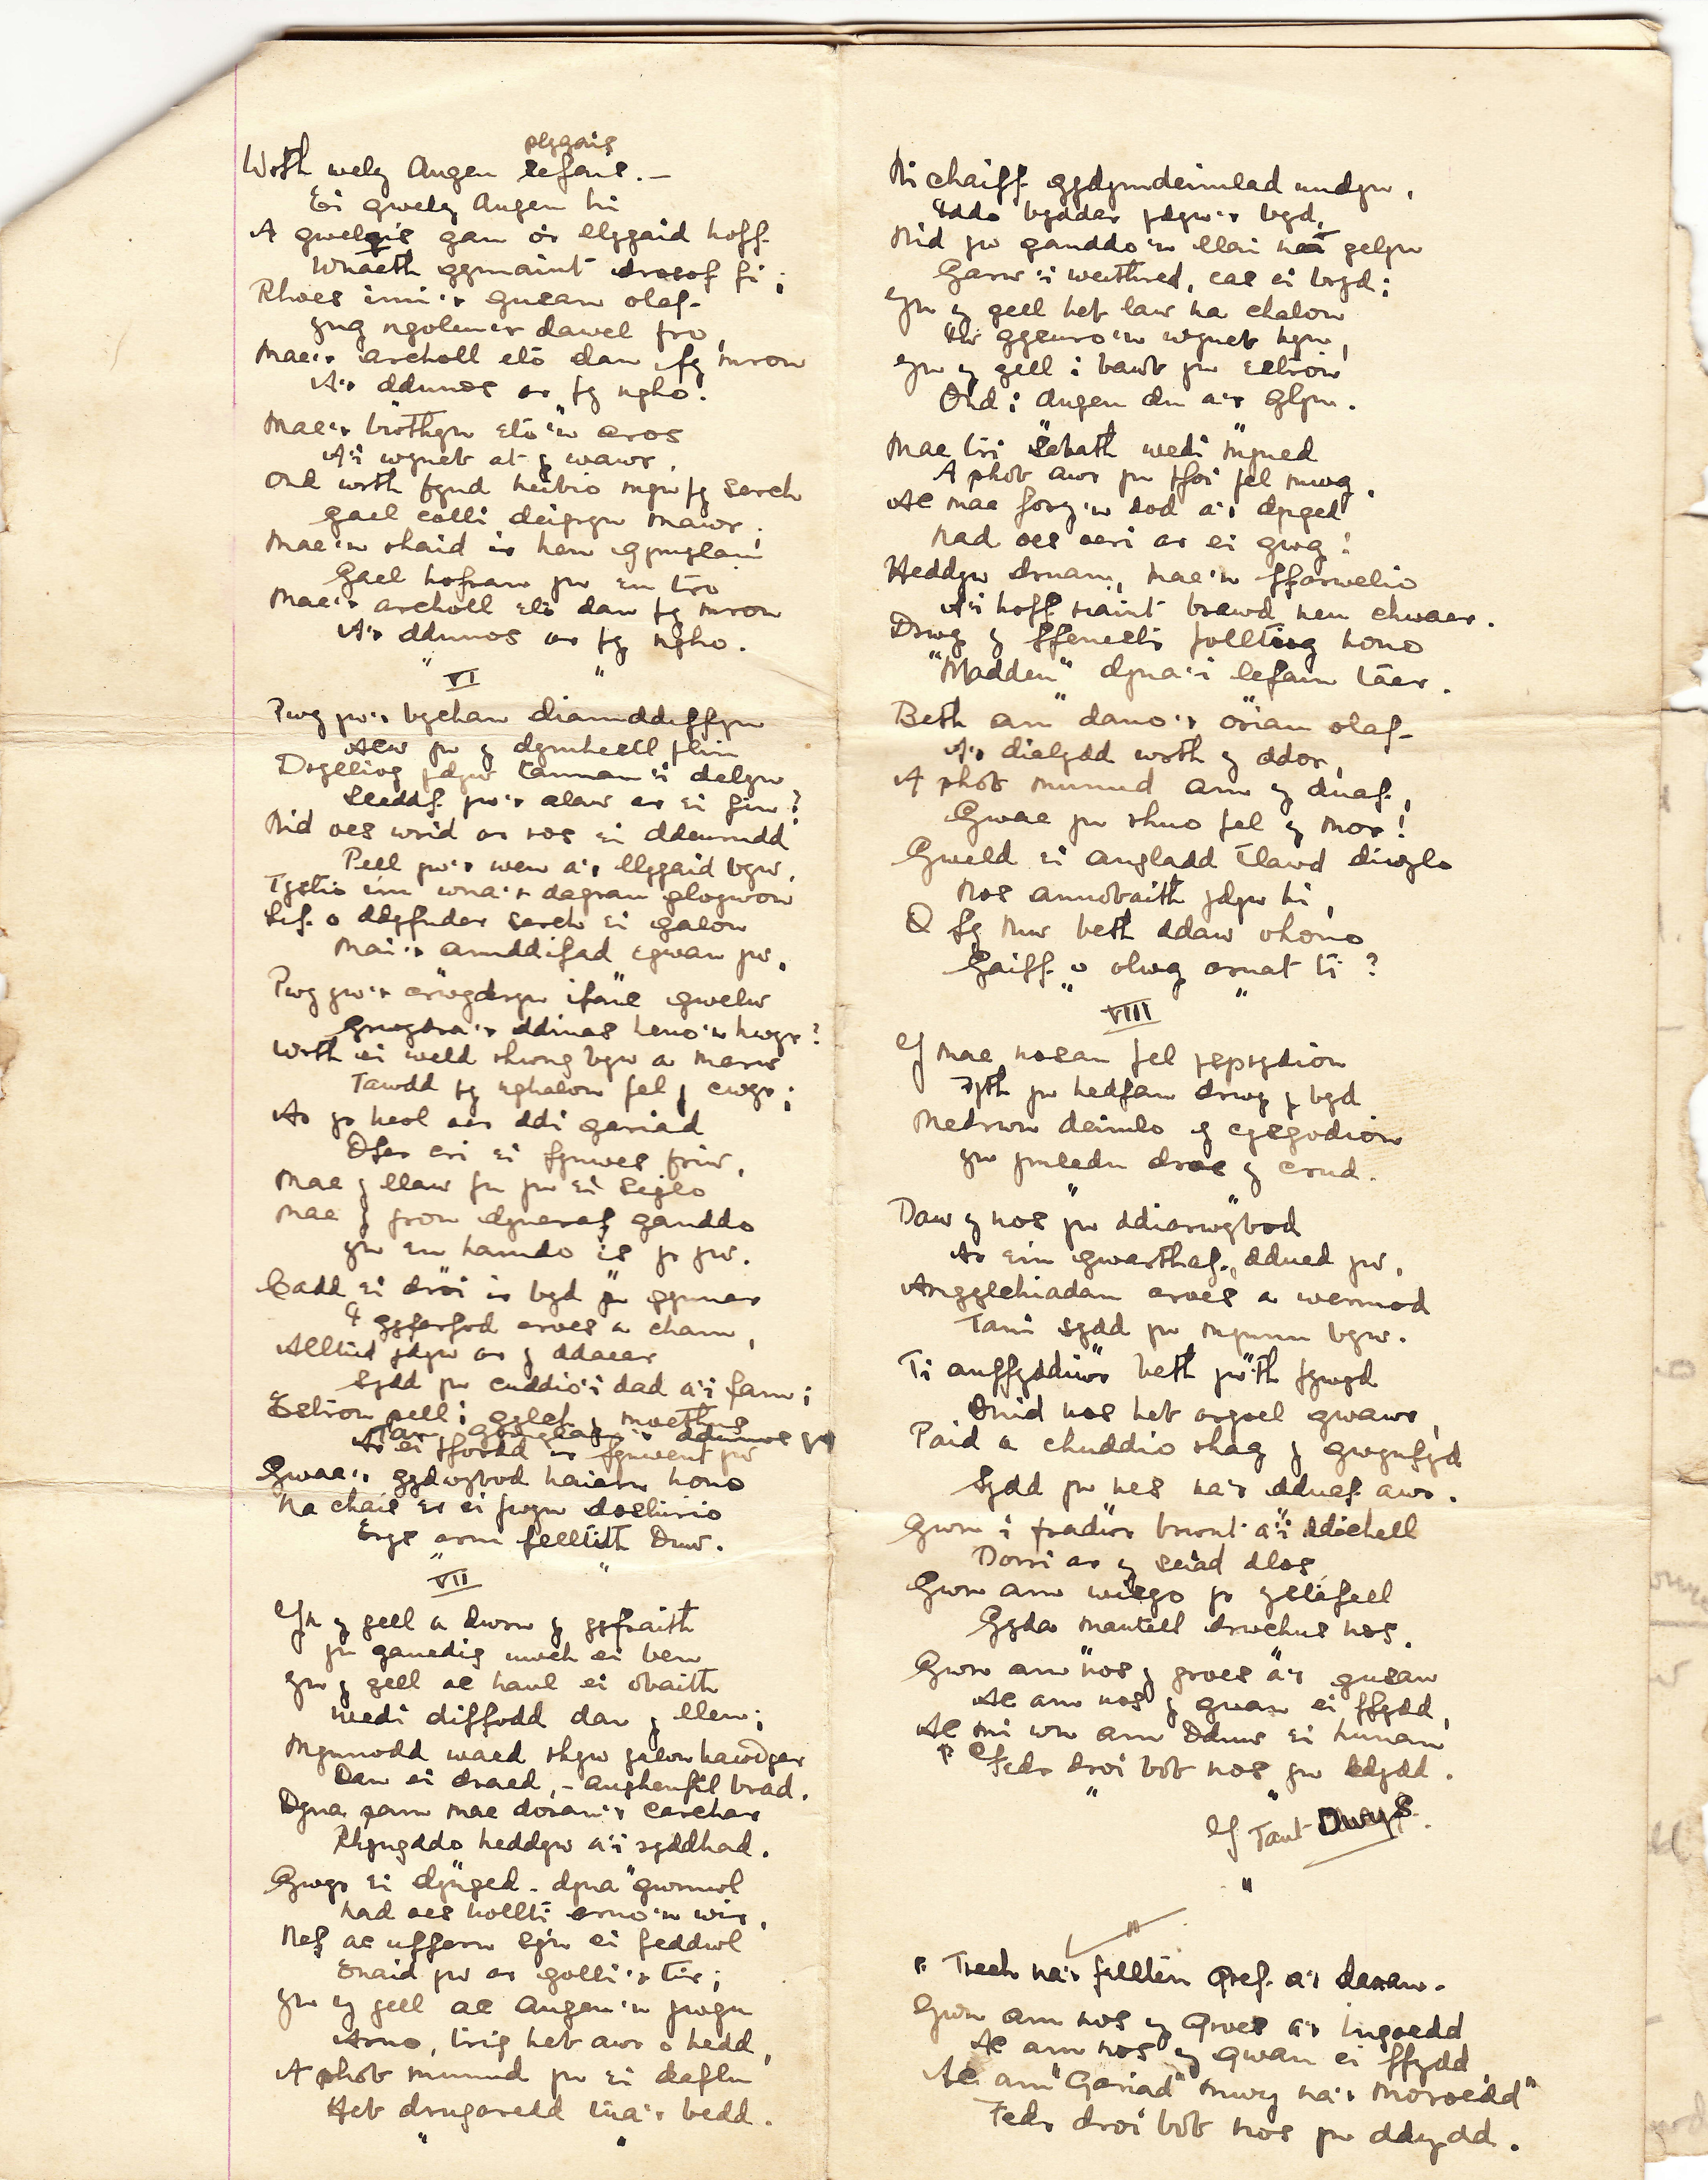 plygais
Wrth wely Angen sefais. —
Ei gwely Angen hi
A gwelais gau o'r llygaid hoff
Wnaeth gymaint drosof fi;
Rhoes imi'r gusan olaf
yng ngoleu'r dawel fro,
Mae'r archoll eto dan fy mron
A'r ddunos ar fy ngho.
Mae'r bwthyn eto'n aros
A'i wyneb at y wawr,
Ond wrth fynd heibio mynn fy serch
Gael colli deigryn mawr;
Mae'n rhaid i'r hen
Gael hofran yn eu tro
Mae'r archoll eto dan fy mron
A'r ddunos ar fy ngho.
" VI "
Pwy yw'r bychan diamddiffyn
Alaw yw y dymhestl flin
Drylliog ydyw tannau'i delyn
Lleddf yw'r alaw ar ei fin?
Nid oes wrid ar ros ei ddeurudd
Pell yw'r wen a'r llygaid byw,
Tystio im wna'r dagrau gloywon
Lif o ddyfnder serch ei galon
Mai'r amddifad egwan yw.
Pwy yw'r crwydryn ifanc gwelw
Grwydra'r ddinas heno'n hwyr?
Wrth ei weld rhwng byw a marw
Tawdd fy nghalon fel y cwyr;
Ar yr heol oer ddi gariad
Ofer cri ei fynwes friw,
Mae y llaw fu yn ei siglo
Mae y fron dyneraf ganddo
yn eu hamdo is yr yw.
Cadd ei droi i'r byd yn gynnar
I gyfarfod croes a cham,
Alltud ydyw ar y ddaear
Sydd yn cuddio'i dad a'i fam;
Estron pell i gylch y moethus
Ar ei ffordd i'r fynwent yw
Gwae'r gydwybod haiarn hono
Na chais er ei fwyn dosturio
Erys arni felltith Duw.
" VII "
Yn y gell a dwrn y gyfraith
yn ganedig uwch ei ben
yn y gell ac haul ei obaith
wedi diffodd dan y llen;
Mynnodd waed rhyw galon hawddgar
Dan ei draed, – anghenfil brad.
Dyna pam mae dorau'r carchar
Rhyngddo heddyw a'i ryddhad.
Gwyr ei dynged – dyna gwmwl
nad oes hollti arno'n wir,
Nef ac uffern sy'n ei feddwl
Enaid yw ar golli'r tir;
yn y gell ac angau'n gwgu
Arno, trig heb awr o hedd,
A phob munud yn ei daflu
Heb drugaredd tua'r bedd.
" "
Ni chaiff gydymdeimlad undyn,
Iddo byddar ydyw'r byd,
Nid yw ganddo'n llai na gelyn
Garw'i weithred, cas ei bryd;
Yn y gell heb law na chalon
I'w gysuro'n wyneb hyn,
Yn y gell i bawb yn estron
Ond i angeu du a'r glyn.
Mae tri Sabath wedi myned
A phob awr yn ffoi fel mwg,
Ac mae fory'n dod a'i dynged
Nad oes oeri ar ei gwg!
Heddyw druan, mae'n ffarwelio
A'i hoff riaint brawd neu chwaer.
Drwy y ffenestr folltiog hono
"Madden" dyna'i lefain taer.
Beth am dano'r oriau olaf
A'r dialydd wrth y ddor,
A phob munud am y duaf,
Gwae yn rhuo fel y mor!
Gweld ei angladd tlawd diwylo
Nos annobaith ydyw hi,
O fy Nuw beth ddaw ohono
Gaiff o olwg arnat ti?
" VIII "
Y mae nosau fel ysprydion
Byth yn hedfan drwy y byd
Medrwn deimlo y cysgodion
yn ymledu dros y crud.
Daw y nos yn ddiarwybod
Ar ein gwarthaf, ddued yw,
Angylchiadau croes a wermod
Tani sydd yn mynnu byw.
Ti anffyddiwr beth yw'th fywyd
Onid nos heb argoel gwawr,
Paid a chuddio rhag y gwynfyd
Sydd yn nes na'r dduaf awr.
Gwn i fradwr brwnt a'i ddichell
Dorri ar y seiad dlos,
Gwn am wisgo yr ystafell
Gyda mantell drwchus nos.
Gwn am nos y groes a'r gusan
Ac am nos y gwan ei ffydd,
Ac mi wn am Dduw ei hunan
Fedr droi bob nos yn ddydd.
" "
Y Tant Dwys.
"
" Trech na'r fellten gref a'r daran.
Gwn am nos y Groes a'r Ingoedd
Ac am nos y gwan ei ffydd,
Ac am "Gariad" mwy na'r moroedd"
Fedr droi bob nos yn ddydd.